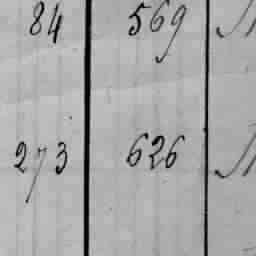 84 569
273 626